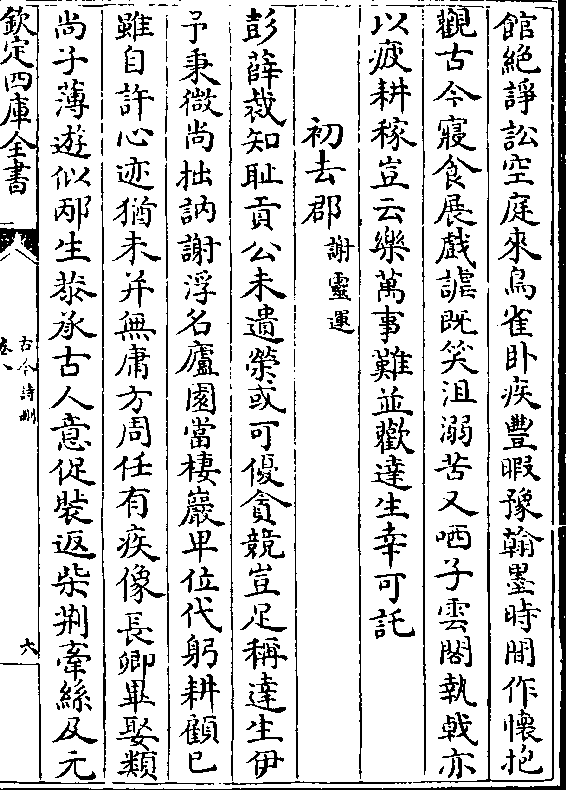 館絶諍訟空庭來鳥雀卧疾豐暇豫翰墨時間作懷抱
觀古今寢食展戲謔既笑沮溺苦又哂子雲閣執戟亦
以疲耕稼豈云樂萬事難並歡達生幸可託
初去郡謝靈運
彭薛裁知耻貢公未遺榮或可優貪競豈足稱達生伊
予秉微尚拙訥謝浮名廬園當棲巖卑位代躬耕顧已
雖自許心迹猶未并無庸方周任有疾像長卿畢娶類
尚子薄遊似邴生恭承古人意促裝返柴荆牽絲及元
欽定四庫全書
古今詩刪
卷八
六